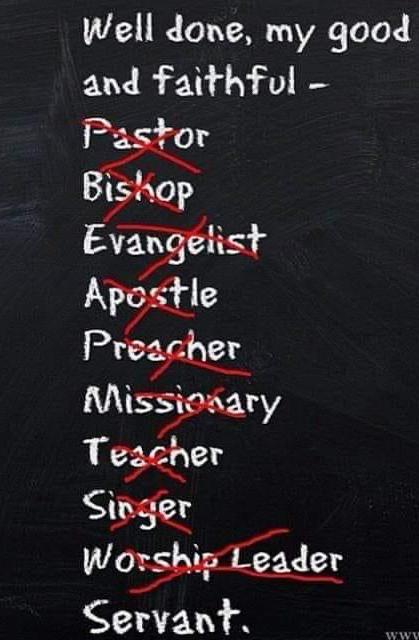 Well done, my good
and faithful -
Pastor
Bishop
Evangelist
Apostle
Preacher
Missionary
Teacher
Singer
Worship Leader
Servant.